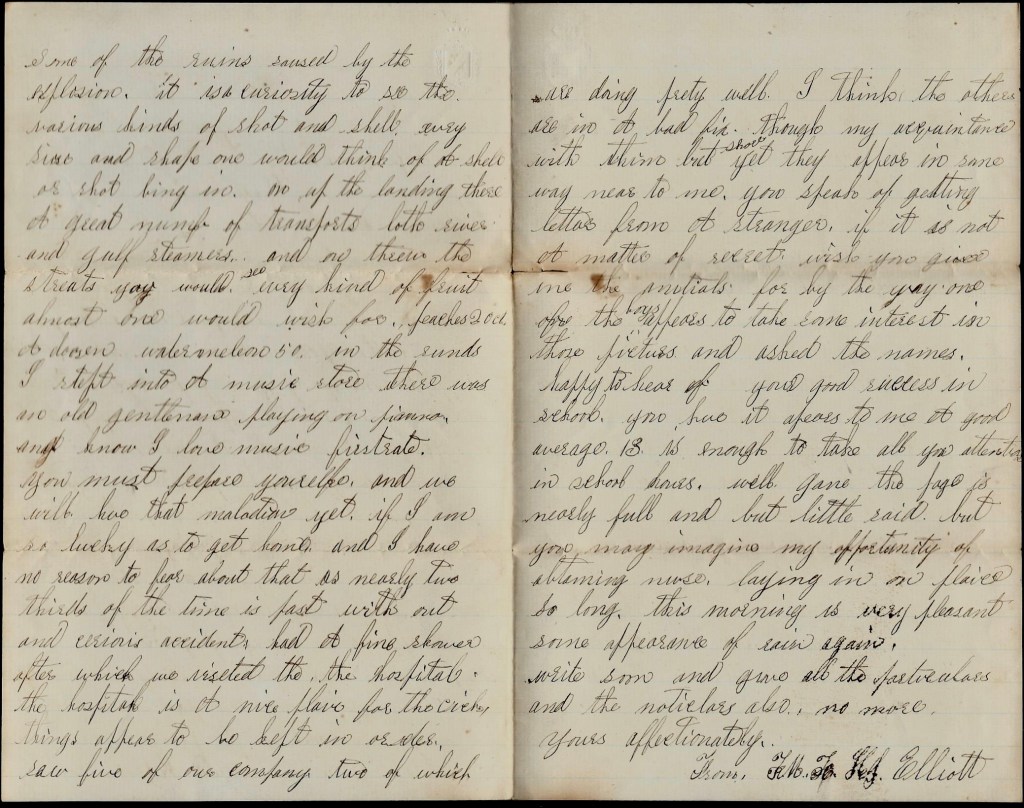 some of the ruins caused by the
explosion. it is a curiosity to se the.
various kinds of shot and shell. every
sise and shape one would think of A shell
or shot bing in. on up the landing there
A great numb of transports both river
and gulf steamers.. and on threw the
streats you would. see every kind of fruit
almost one would wish for. peaches 20 ct.
A doozen watermeleon 50. in the runds
I stept into A music store there was
an old gentleman playing on pianno.
and know I love music firstrate.
you must prepare yourselfe. and we
will have that malodian yet. if I am
so lucky as to get home. and I have
no reason to fear about that as nearly two
thirds of the time is past with out
and cerioris accident. had A fine shower
after which we viseted the. the hospital.
the hospital is A nice plaice for the sick,
things appear to be kept in order.
saw five of our company two of which
are doing prety well. I think the others
are in A bad fix. though my acquaintance
with them but short yet they appear in some
way near to me. you speak of getting
letter from A stranger. if it is not
A matter of secret. wish you give
me the initials. for by the way one
of the boys appears to take some interest in
those picturs and asked the names.
happy to hear of your good success in
school. you have it apears to me A good
average. 13. is enough to take all you attention
in school hours. well Jane the page is
nearly full and but little said. but
you may imagine my opportunity of
obtaining nuse. laying in on plaice
so long. this morning is very pleasant
some appearance of rain again.
write soon and give all the perticulars
and the noticlars also. no more.
yours affectionately.
From, Elliott